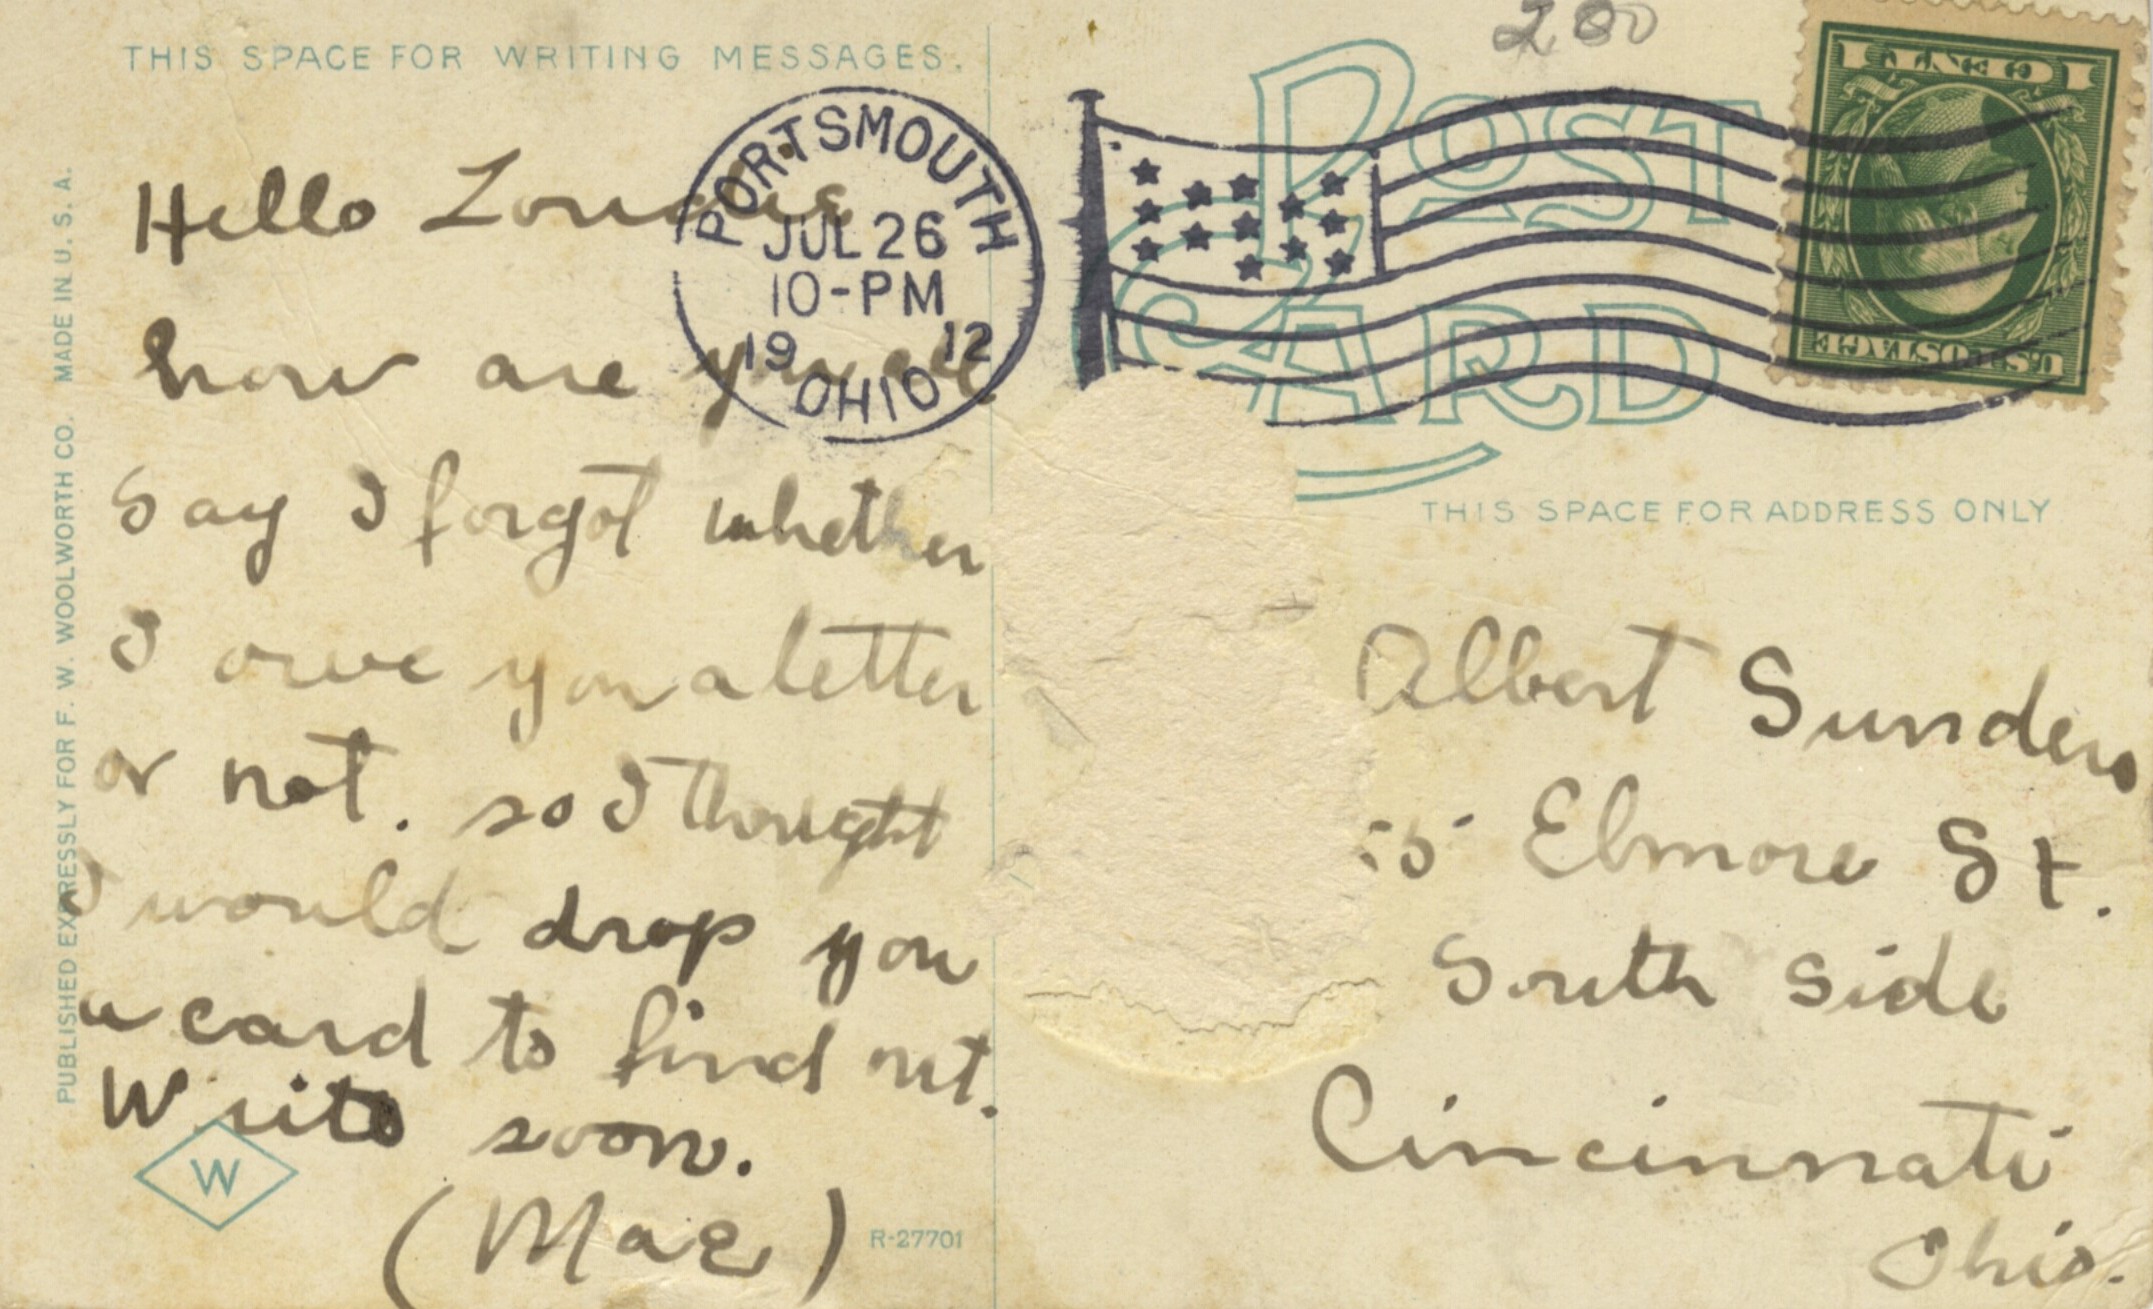 THIS SPACE FOR WRITING MESSAGES.
Hello
how are you
Say I forgot whether
I owe you a letter
or not. so I thought
I would drop you
a card to find out.
Write soon.
(Mae)
PUBLISHED EXPRESSLY FOR F. W. WOOLWORTH CO. MADE IN U. S. A.
W
R-27701
PORTSMOUTH
JUL 26
10-PM
19 12
OHIO
200
POST
CARD
1 CENT 1
U.S. POSTAGE
THIS SPACE FOR ADDRESS ONLY
Albert Sunders
5 Elmore St.
South Side
Cincinnati
Ohio.